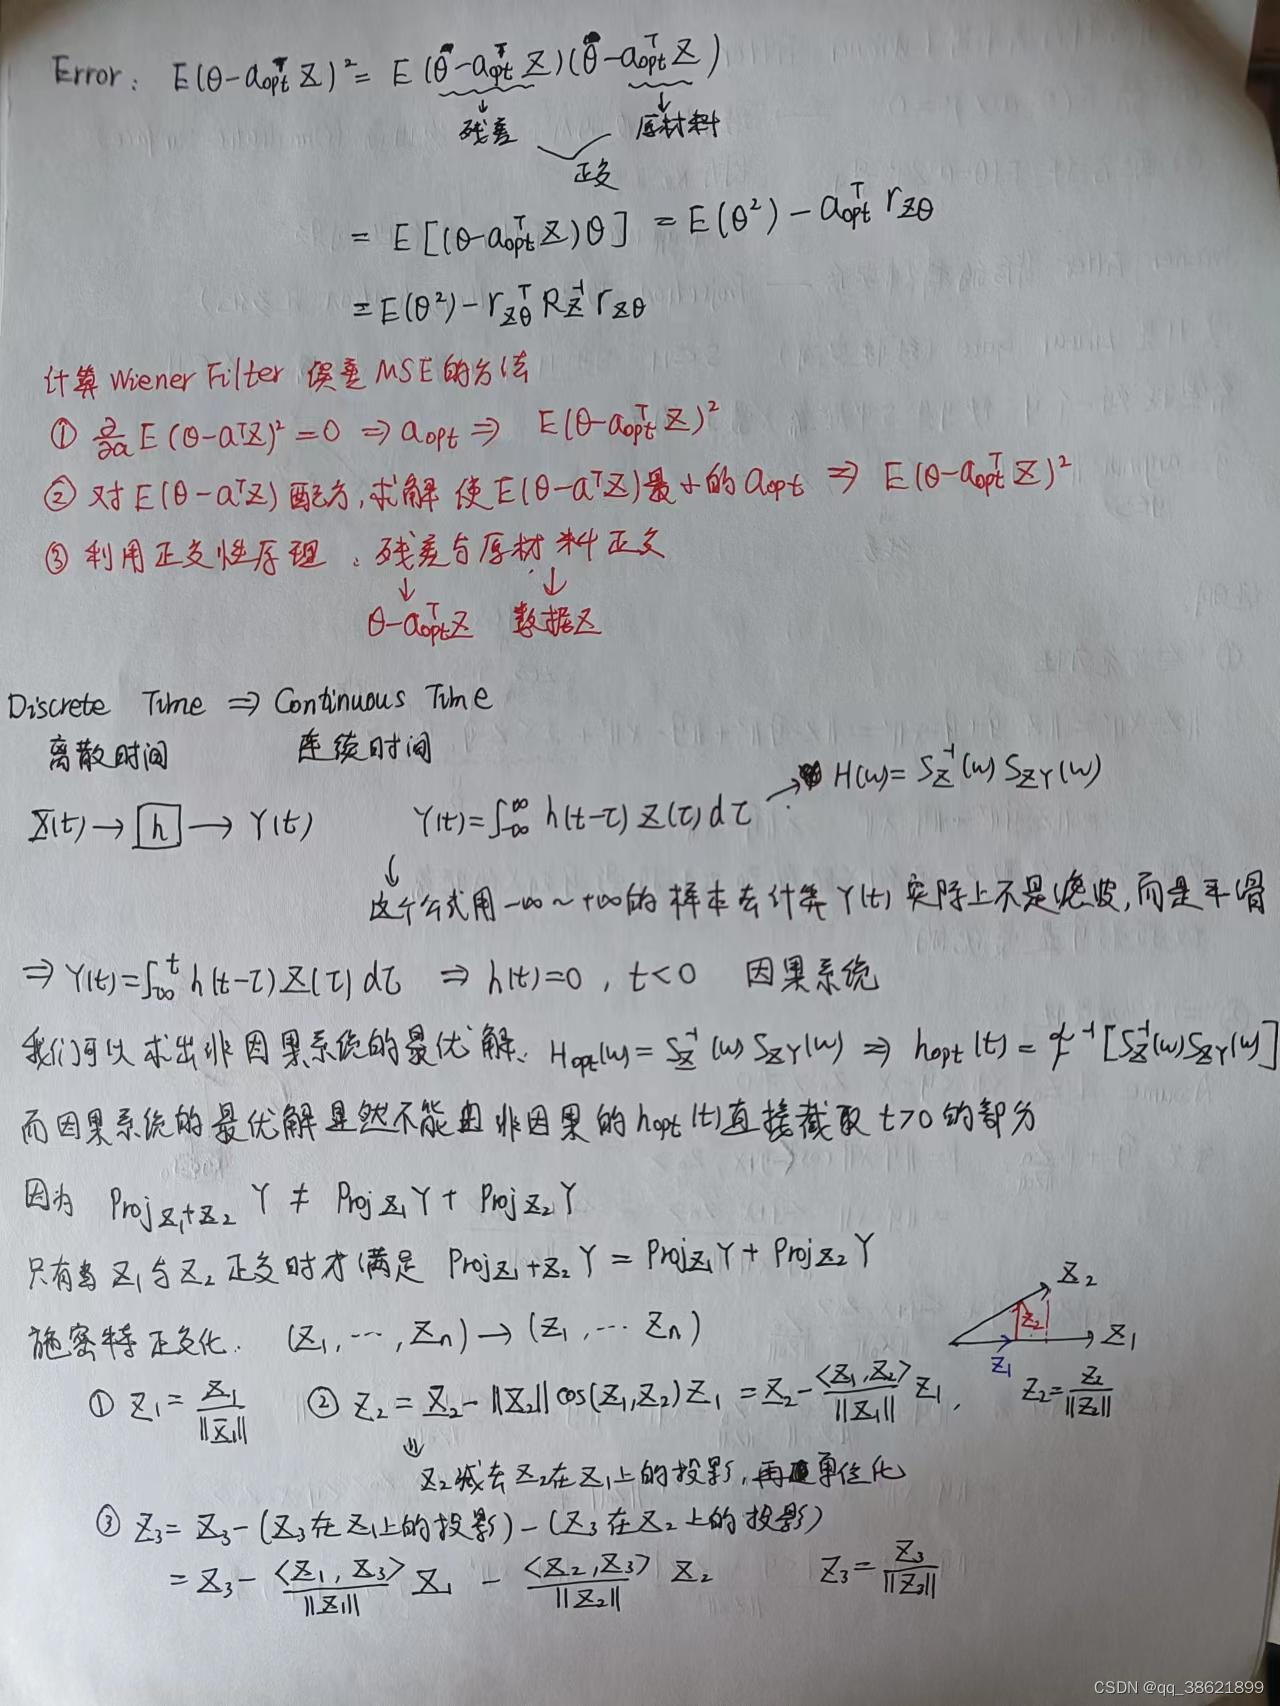 Error: E(θ-a_opt^T Z)² = E(θ-a_opt^T Z)(θ-a_opt^T Z)
残差 原材料
正交
= E[(θ-a_opt^T Z)θ] = E(θ²) - a_opt^T r_Zθ
= E(θ²) - r_Zθ^T R_Z^-1 r_Zθ
计算Wiener Filter 误差MSE的方法
① ∂/∂a E(θ-a^T Z)² = 0 ⇒ a_opt ⇒ E(θ-a_opt^T Z)²
② 对E(θ-a^T Z)配方,求解使E(θ-a^T Z)最小的a_opt ⇒ E(θ-a_opt^T Z)²
③ 利用正交性原理. 残差与原材料正交
θ-a_opt^T Z 数据Z
Discrete Time ⇒ Continuous Time
离散时间 连续时间
H(w)= S_Z^-1(w) S_ZY(w)
Z(t) → h → Y(t) Y(t)=∫_-∞^∞ h(t-τ) Z(τ) dτ
这个公式用-∞~+∞的样本去计算Y(t) 实际上不是滤波,而是平滑
⇒ Y(t)=∫_-∞^t h(t-τ) Z(τ) dτ ⇒ h(t)=0, t<0 因果系统
我们可以求出非因果系统的最优解. H_opt(w)= S_Z^-1(w) S_ZY(w) ⇒ h_opt(t) = F^-1[S_Z^-1(w) S_ZY(w)]
而因果系统的最优解显然不能由非因果的h_opt(t)直接截取t>0的部分
因为 Proj_Z1+Z2 Y ≠ Proj_Z1 Y + Proj_Z2 Y
只有当Z1与Z2正交时才满足 Proj_Z1+Z2 Y = Proj_Z1 Y + Proj_Z2 Y
Z2
Z2
Z1
Z1
施密特正交化. (Z1, ..., Zn) → (Z1, ... Zn)
① Z1 = Z1/||Z1|| ② Z2 = Z2 - ||Z2|| cos(Z1,Z2) Z1 = Z2 - <Z1,Z2>/||Z1|| Z1, Z2 = Z2/||Z2||
Z2减去Z2在Z1上的投影,再单位化
③ Z3 = Z3 - (Z3在Z1上的投影) - (Z3在Z2上的投影)
= Z3 - <Z1,Z3>/||Z1|| Z1 - <Z2,Z3>/||Z2|| Z2 Z3 = Z3/||Z3||
CSDN @qq_38621899